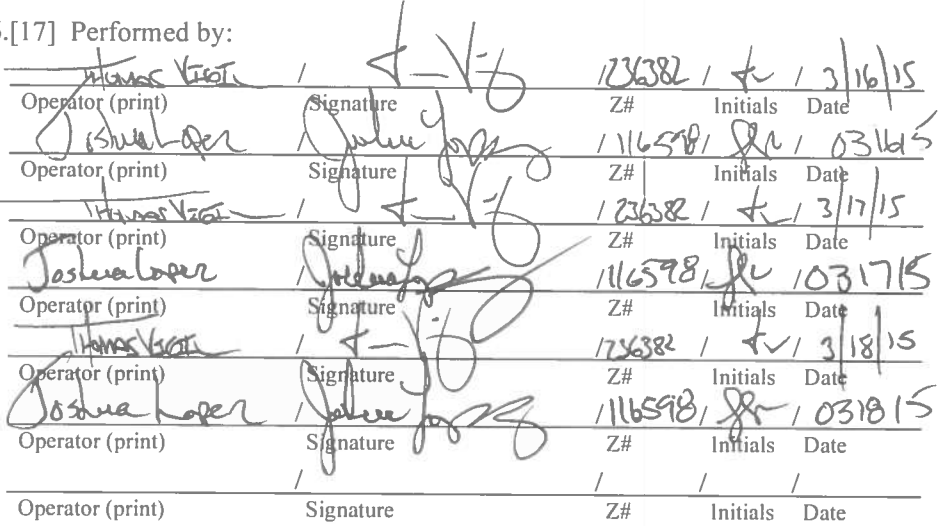 .[17] Performed by:
THOMAS VIGIL / / 236382 / tv / 3/16/15
Operator (print) Signature Z# Initials Date
Joshua Lopez Joshua Lopez / 116598 / / 031615
Operator (print) Signature Z# Initials Date
THOMAS VIGIL / / 236382 / tv / 3/17/15
Operator (print) Signature Z# Initials Date
Joshua Lopez Joshua Lopez / 116598 / / 031715
Operator (print) Signature Z# Initials Date
THOMAS VIGIL / / 236382 / tv / 3/18/15
Operator (print) Signature Z# Initials Date
Joshua Lopez Joshua Lopez / 116598 / / 031815
Operator (print) Signature Z# Initials Date
/ / / /
Operator (print) Signature Z# Initials Date